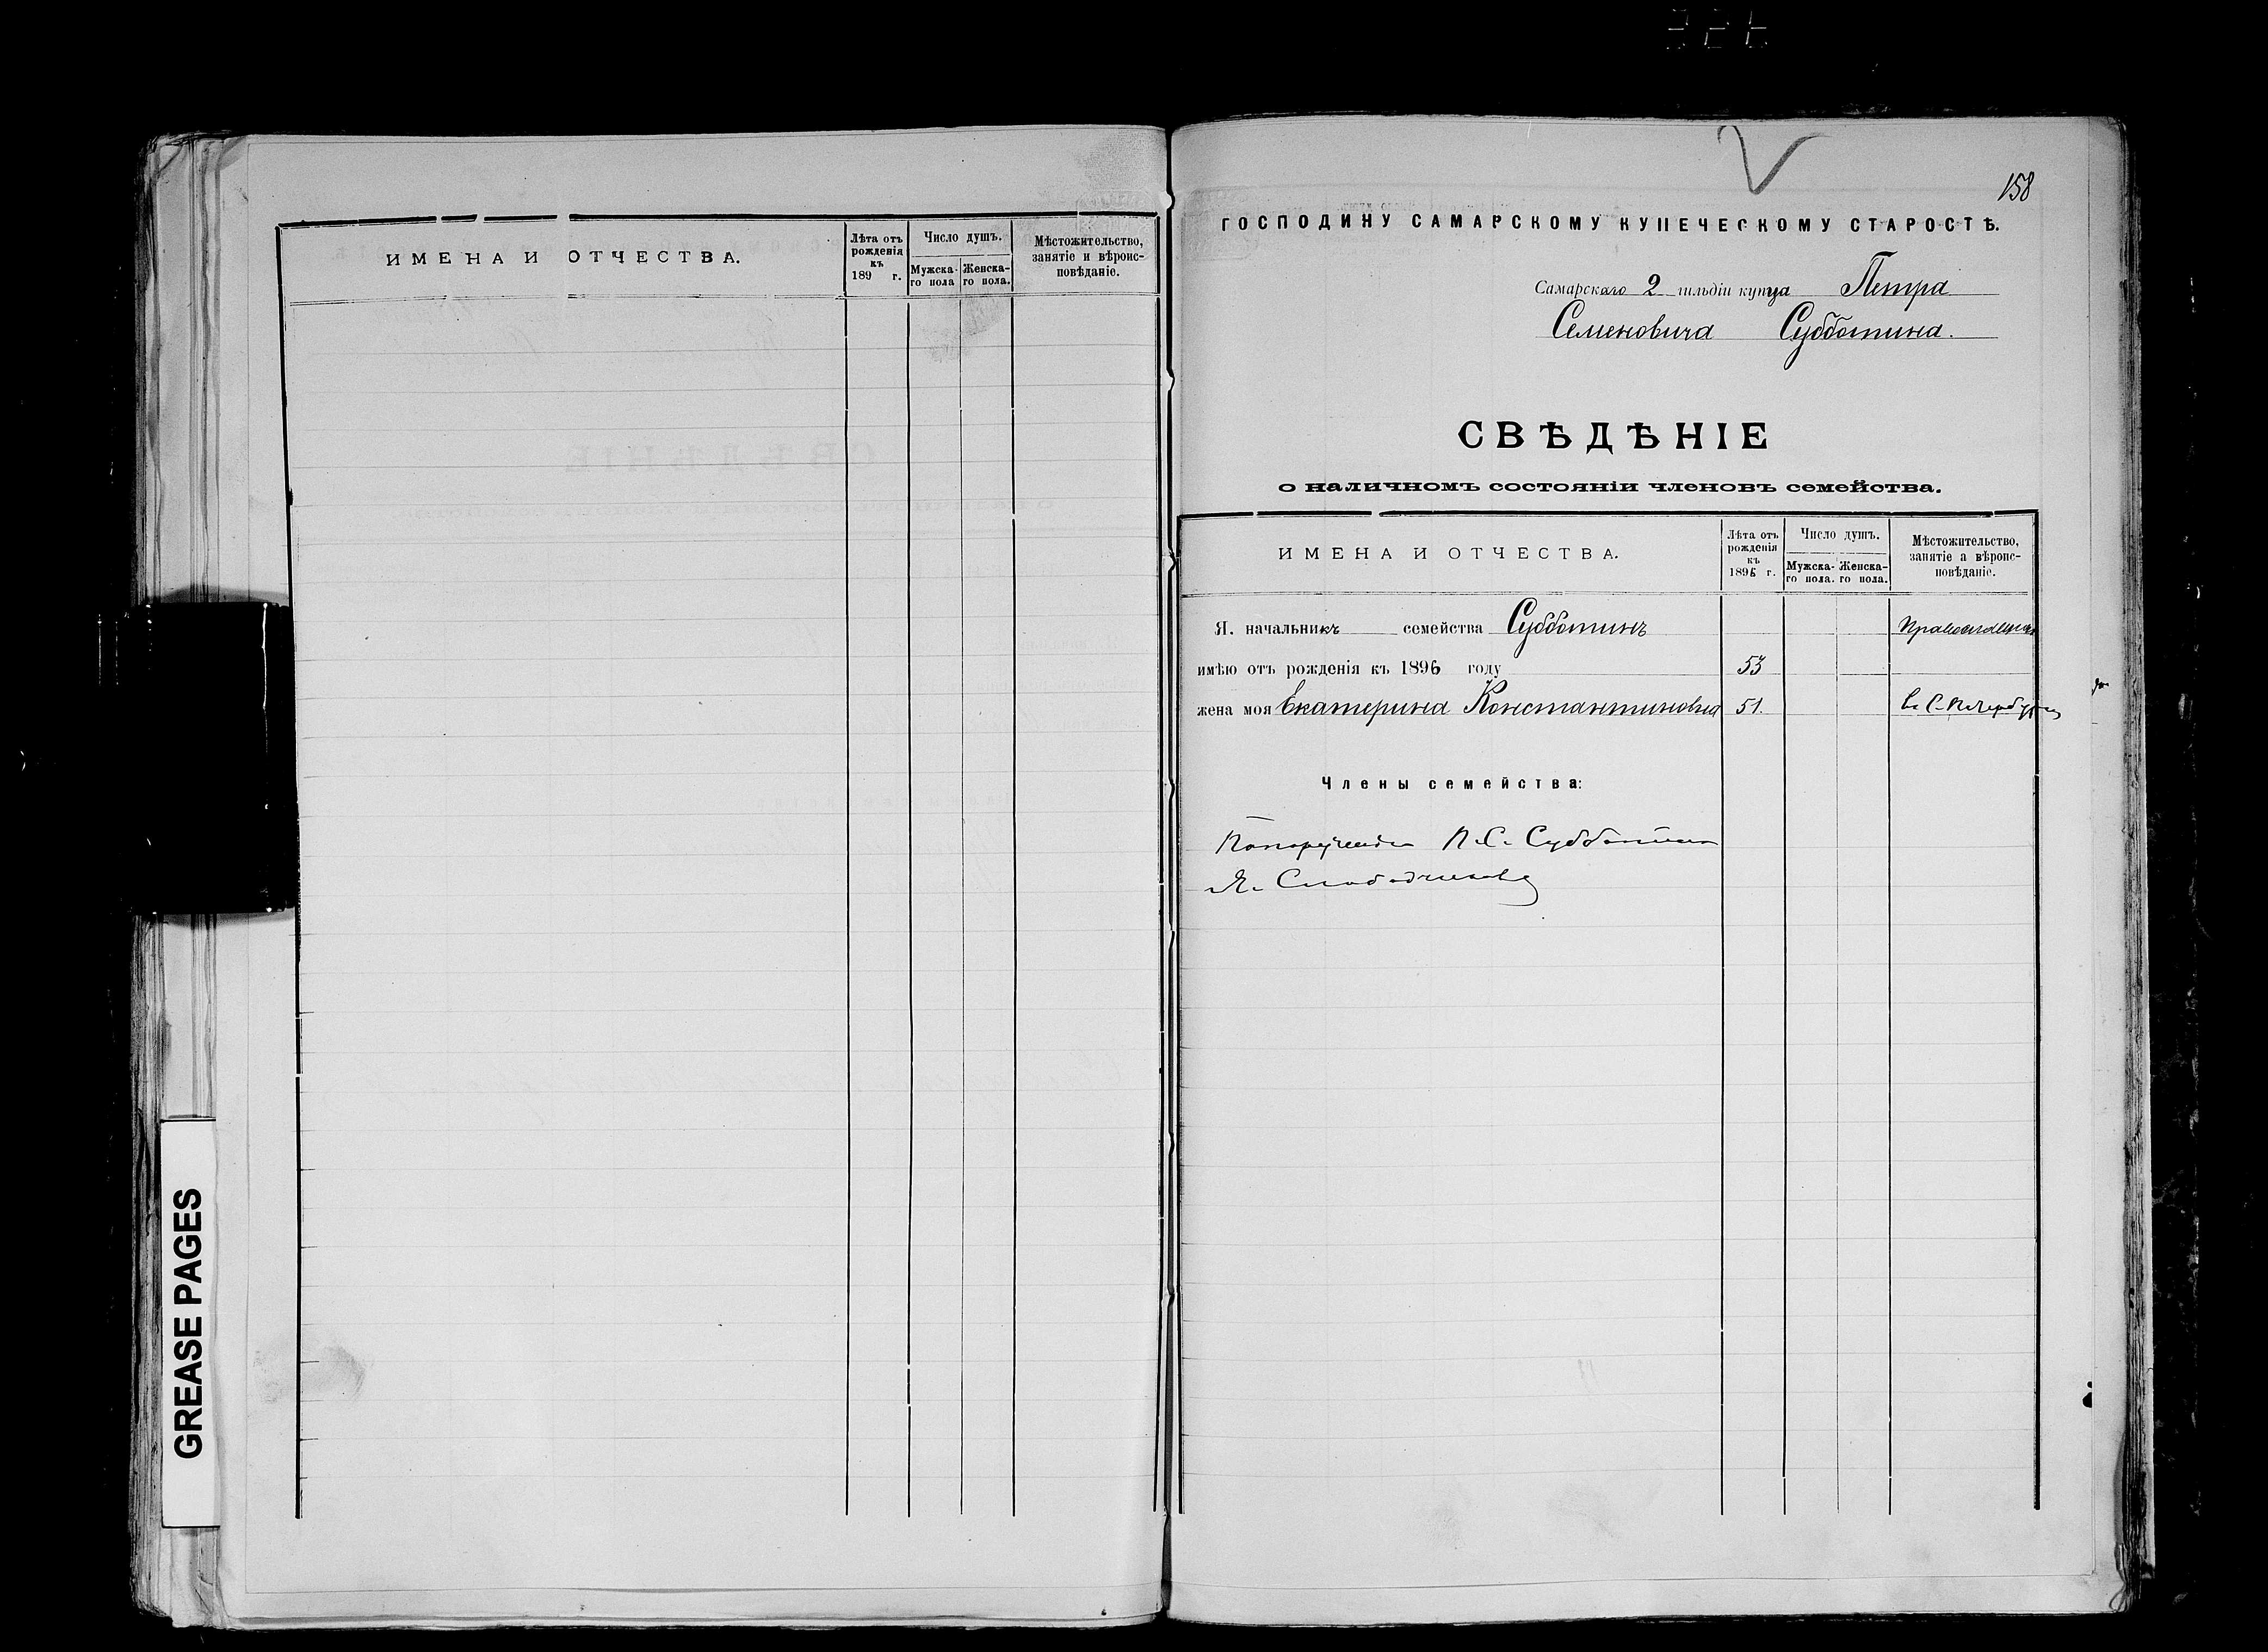 ИМЕНА И ОТЧЕСТВА.
Лѣта отъ рожденія къ 189 г.
Число душъ.
Мужска-го пола
Женска-го пола.
Мѣстожительство, занятіе и вѣроис-повѣданіе.
GREASE PAGES
158
ГОСПОДИНУ САМАРСКОМУ КУПЕЧЕСКОМУ СТАРОСТѢ.
Самарскаго 2 гильдіи купца Петра
Семеновича Субботина.
СВѢДѢНІЕ
о наличномъ состояніи членовъ семейства.
ИМЕНА И ОТЧЕСТВА.
Лѣта отъ рожденія къ 1896 г.
Число душъ.
Мужска-го пола.
Женска-го пола.
Мѣстожительство, занятіе а вѣроис-повѣданіе.
Я. начальникъ семейства Субботинъ
имѣю отъ рожденія къ 1896 году 53
жена моя Екатерина Константиновна 51. въ С-Петербургѣ
Члены семейства:
П. С. Субботина